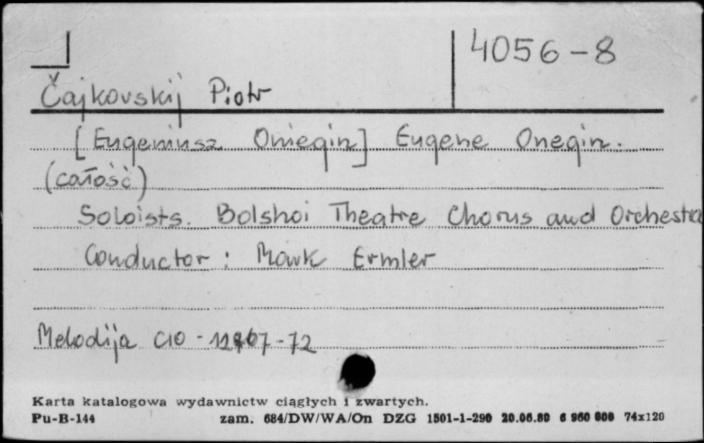 4056-8
Čajkovskij Piotr
[Eugeniusz Oniegin] Eugene Onegin.
(całość)
Soloists. Bolshoi Theatre Chorus and Orchestra
Conductor: Mark Ermler
Melodija C10-12467-72
Karta katalogowa wydawnictw ciągłych i zwartych.
Pu-B-144 zam. 684/DW/WA/On DZG 1501-1-290 20.06.80 6 960 000 74x120